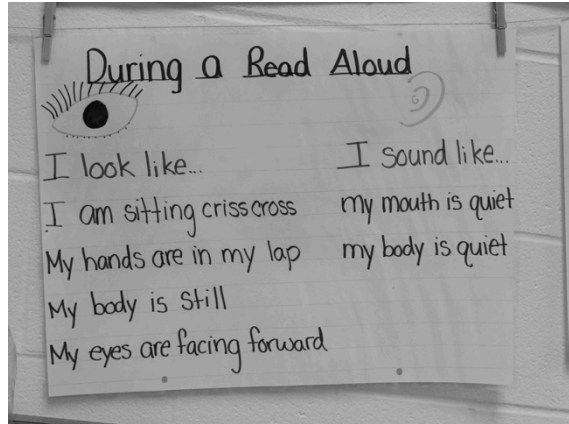 During a Read Aloud
I look like...
I am sitting crisscross
My hands are in my lap
My body is still
My eyes are facing forward
I sound like...
my mouth is quiet
my body is quiet